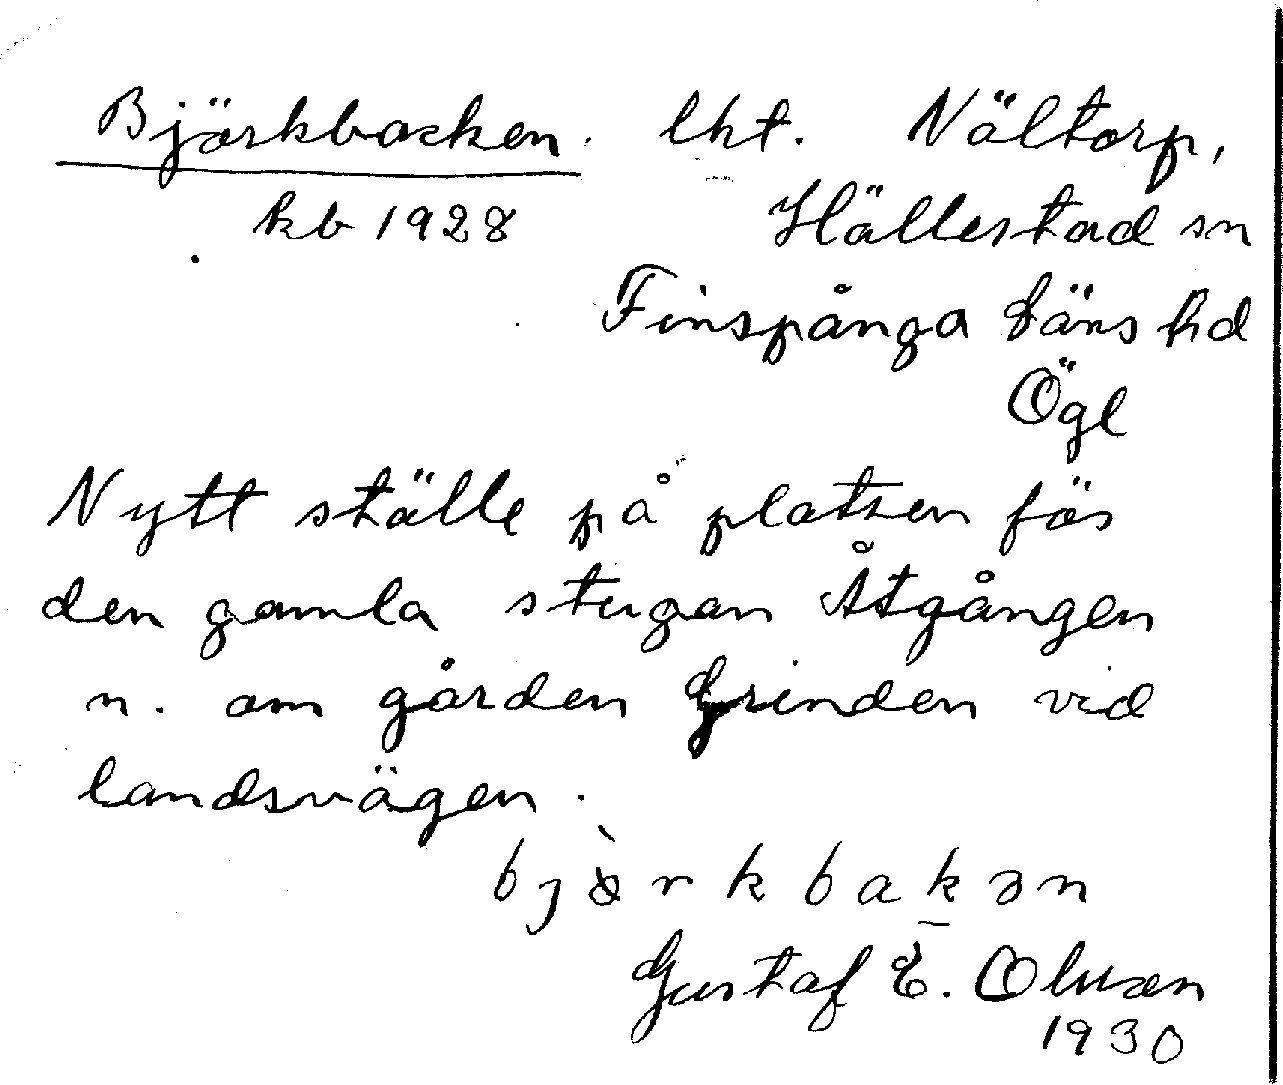 Björkbacken. lht. Nältorp,
kb 1928 Hällestad sn
Finspånga läns hd
Ögl
Nytt ställe på platsen för
den gamla stugan Åtgången
n. om gården Grinden vid
landsvägen.
bjɵ̀rkbak̲ən
Gustaf E. Olsson
1930